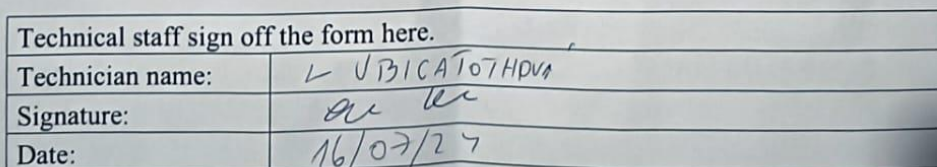 Technical staff sign off the form here.
Technician name: L UBICA TOTHOVA
Signature:
Date: 16/07/24